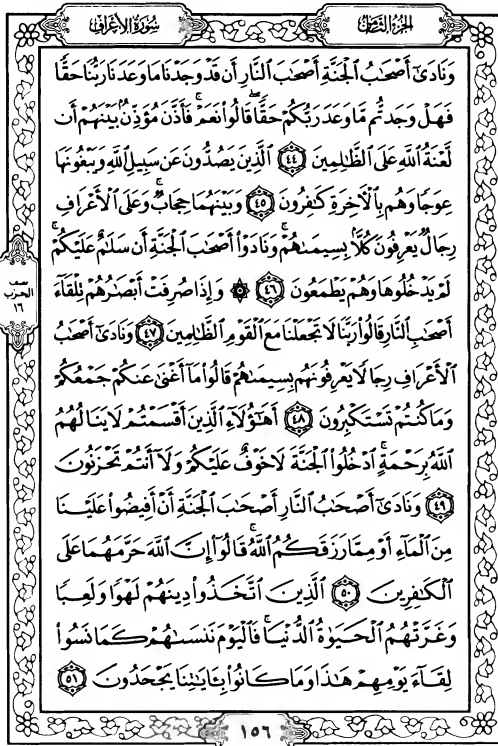 سُورَةُ الأَعْرَافِ
الجُزْءُ الثَّامِنُ
وَنَادَىٰٓ أَصْحَٰبُ ٱلْجَنَّةِ أَصْحَٰبَ ٱلنَّارِ أَن قَدْ وَجَدْنَا مَا وَعَدَنَا رَبُّنَا حَقًّا
فَهَلْ وَجَدتُّم مَّا وَعَدَ رَبُّكُمْ حَقًّا ۖ قَالُوا۟ نَعَمْ ۚ فَأَذَّنَ مُؤَذِّنٌۢ بَيْنَهُمْ أَن
لَّعْنَةُ ٱللَّهِ عَلَى ٱلظَّٰلِمِينَ ٤٤ ٱلَّذِينَ يَصُدُّونَ عَن سَبِيلِ ٱللَّهِ وَيَبْغُونَهَا
عِوَجًا وَهُم بِٱلْءَاخِرَةِ كَٰفِرُونَ ٤٥ وَبَيْنَهُمَا حِجَابٌ ۚ وَعَلَى ٱلْأَعْرَافِ
رِجَالٌ يَعْرِفُونَ كُلًّۢا بِسِيمَىٰهُمْ ۚ وَنَادَوْا۟ أَصْحَٰبَ ٱلْجَنَّةِ أَن سَلَٰمٌ عَلَيْكُمْ ۚ
لَمْ يَدْخُلُوهَا وَهُمْ يَطْمَعُونَ ٤٦ ۞ وَإِذَا صُرِفَتْ أَبْصَٰرُهُمْ تِلْقَآءَ
أَصْحَٰبِ ٱلنَّارِ قَالُوا۟ رَبَّنَا لَا تَجْعَلْنَا مَعَ ٱلْقَوْمِ ٱلظَّٰلِمِينَ ٤٧ وَنَادَىٰٓ أَصْحَٰبُ
ٱلْأَعْرَافِ رِجَالًا يَعْرِفُونَهُم بِسِيمَىٰهُمْ قَالُوا۟ مَآ أَغْنَىٰ عَنكُمْ جَمْعُكُمْ
وَمَا كُنتُمْ تَسْتَكْبِرُونَ ٤٨ أَهَٰٓؤُلَآءِ ٱلَّذِينَ أَقْسَمْتُمْ لَا يَنَالُهُمُ
ٱللَّهُ بِرَحْمَةٍ ۚ ٱدْخُلُوا۟ ٱلْجَنَّةَ لَا خَوْفٌ عَلَيْكُمْ وَلَآ أَنتُمْ تَحْزَنُونَ
٤٩ وَنَادَىٰٓ أَصْحَٰبُ ٱلنَّارِ أَصْحَٰبَ ٱلْجَنَّةِ أَنْ أَفِيضُوا۟ عَلَيْنَا
مِنَ ٱلْمَآءِ أَوْ مِمَّا رَزَقَكُمُ ٱللَّهُ ۚ قَالُوٓا۟ إِنَّ ٱللَّهَ حَرَّمَهُمَا عَلَى
ٱلْكَٰفِرِينَ ٥٠ ٱلَّذِينَ ٱتَّخَذُوا۟ دِينَهُمْ لَهْوًا وَلَعِبًا
وَغَرَّتْهُمُ ٱلْحَيَوٰةُ ٱلدُّنْيَا ۚ فَٱلْيَوْمَ نَنسَىٰهُمْ كَمَا نَسُوا۟
لِقَآءَ يَوْمِهِمْ هَٰذَا وَمَا كَانُوا۟ بِـَٔايَٰتِنَا يَجْحَدُونَ ٥١
نصف
الحزب
١٦
١٥٦